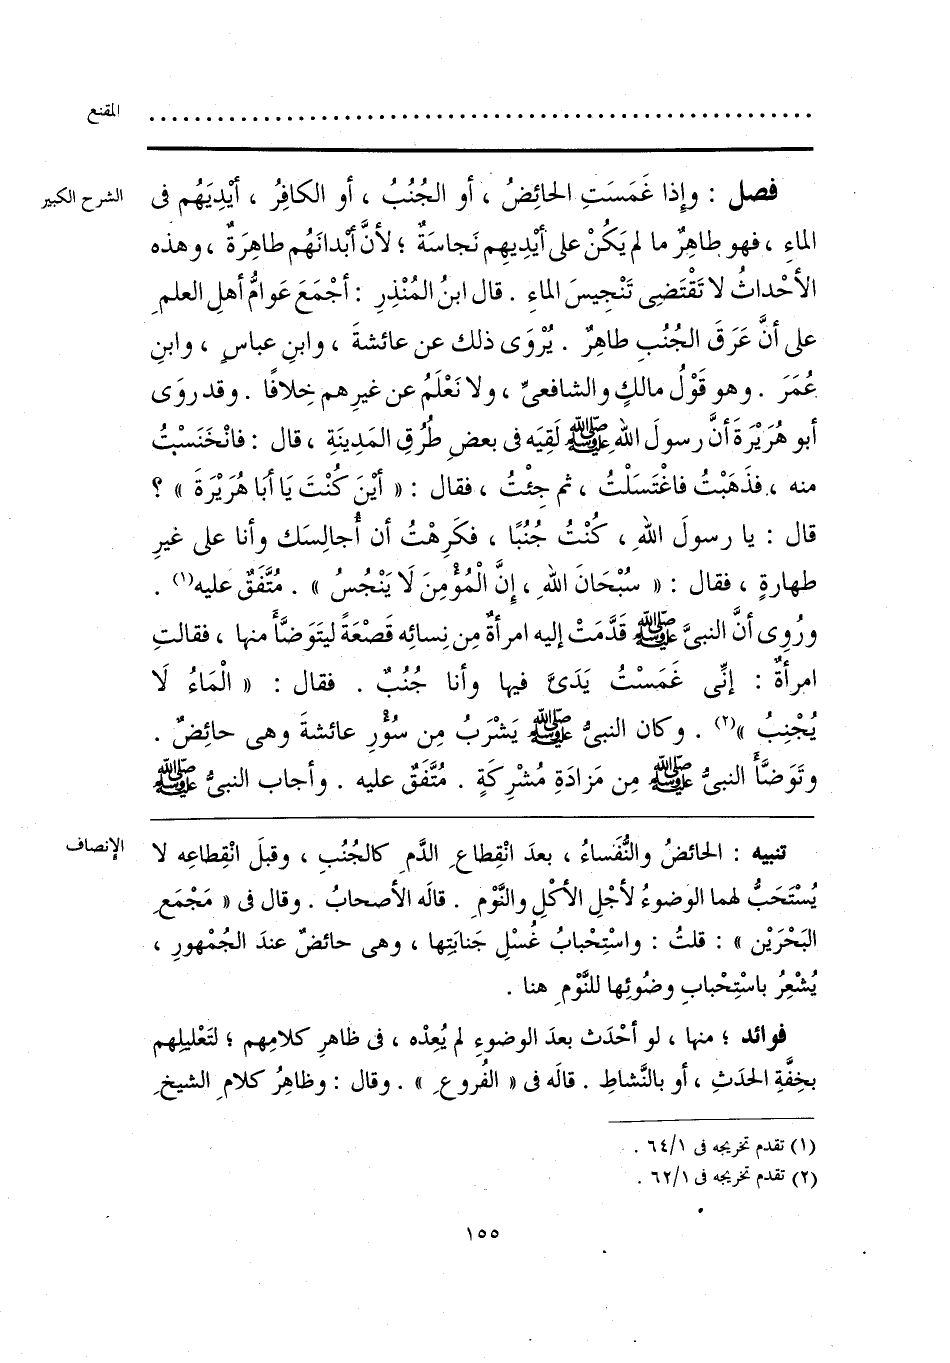 المقنع ........................................................
الشرح الكبير
فصل : وإذا غَمَسَتِ الحائِضُ ، أو الجُنُبُ ، أو الكافِرُ ، أيْدِيَهُم فى
الماءِ ، فهو طاهِرٌ ما لم يَكُنْ على أيْدِيهِم نَجاسَةٌ ؛ لأنَّ أبْدانَهُم طاهِرَةٌ ، وهذه
الأحْداثُ لا تَقْتَضِى تَنْجِيسَ الماءِ . قال ابنُ المُنْذِرِ : أجْمَعَ عَوامُّ أهلِ العلمِ
على أنَّ عَرَقَ الجُنُبِ طاهِرٌ . يُرْوَى ذلك عن عائشةَ ، وابنِ عباسٍ ، وابنِ
عُمَرَ . وهو قَوْلُ مالكٍ والشافعىِّ ، ولا نَعْلَمُ عن غيرِهم خِلافًا . وقد روَى
أبو هُرَيْرَةَ أنَّ رسولَ اللهِ ﷺ لَقِيَه فى بعضِ طُرُقِ المَدِينَةِ ، قال : فانْخَنَسْتُ
منه ، فذَهَبْتُ فاغْتَسَلْتُ ، ثم جِئْتُ ، فقال : « أيْنَ كُنْتَ يَا أبَا هُرَيْرَةَ » ؟
قال : يا رسولَ اللهِ ، كُنْتُ جُنُبًا ، فكَرِهْتُ أن أُجالِسَك وأنا على غيرِ
طهارةٍ ، فقال : « سُبْحَانَ اللهِ ، إِنَّ الْمُؤْمِنَ لَا يَنْجُسُ » . مُتَّفَقٌ عليه(١) .
ورُوِى أنَّ النبىَّ ﷺ قَدَّمَتْ إليه امرأةٌ مِن نِسائِه قَصْعَةً ليَتَوَضَّأَ منها ، فقالتِ
امرأةٌ : إنِّى غَمَسْتُ يَدَىَّ فيها وأنا جُنُبٌ . فقال : « الْمَاءُ لَا
يُجْنِبُ »(٢) . وكان النبىُّ ﷺ يَشْرَبُ مِن سُؤْرِ عائشةَ وهى حائِضٌ .
وتَوَضَّأَ النبىُّ ﷺ مِن مَزادَةِ مُشْرِكَةٍ . مُتَّفَقٌ عليه . وأجاب النبىُّ ﷺ
الإنصاف
تنبيه : الحائضُ والنُّفَساءُ ، بعدَ انْقِطاعِ الدَّمِ كالجُنُبِ ، وقبلَ انْقِطاعِه لا
يُسْتَحَبُّ لهما الوضوءُ لأجْلِ الأكْلِ والنَّوْمِ . قالَه الأصحابُ . وقال فى « مَجْمَعِ
البَحْرَيْن » : قلتُ : واسْتِحْبابُ غُسْلِ جَنابَتِها ، وهى حائضٌ عندَ الجُمْهورِ ،
يُشْعِرُ باسْتِحْبابِ وضُوئِها للنَّوْمِ هنا .
فوائد ؛ منها ، لو أحْدَث بعدَ الوضوءِ لم يُعِدْه ، فى ظاهرِ كلامِهم ؛ لتَعْلِيلِهم
بخِفَّةِ الحدَثِ ، أو بالنَّشاطِ . قالَه فى « الفُروعِ » . وقال : وظاهِرُ كلامِ الشيخِ
(١) تقدم تخريجه فى ٦٤/١ .
(٢) تقدم تخريجه فى ٦٢/١ .
١٥٥